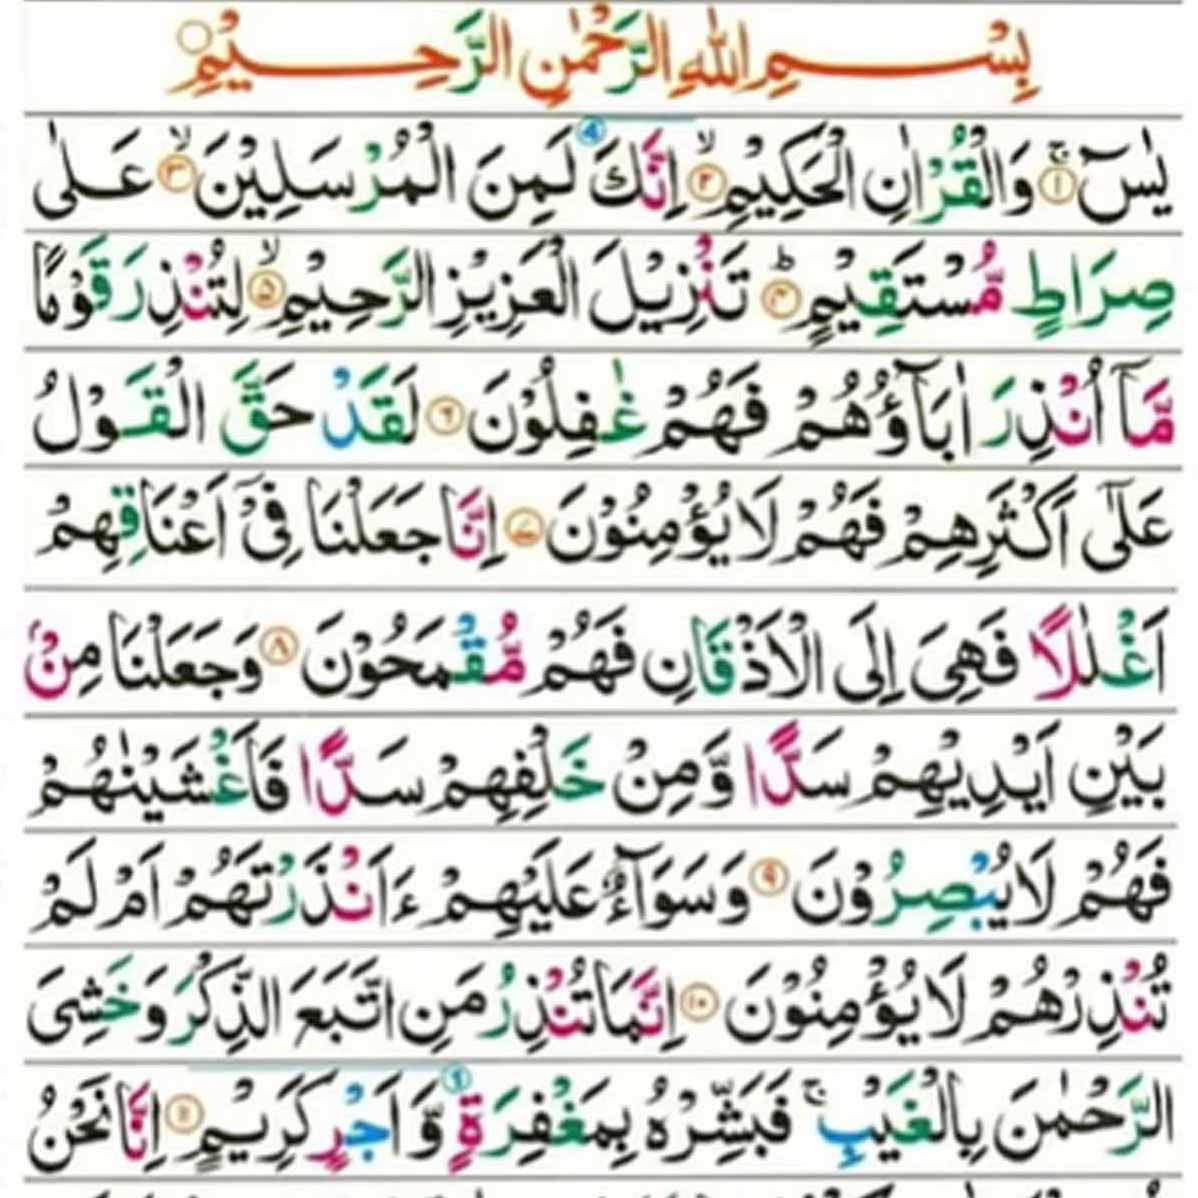 بِسْمِ اللهِ الرَّحْمٰنِ الرَّحِيْمِ
يٰسٓ ۚ ﴿۱﴾ وَالْقُرْاٰنِ الْحَكِيْمِ ۙ ﴿۲﴾ اِنَّكَ لَمِنَ الْمُرْسَلِيْنَ ۙ ﴿۳﴾ عَلٰى
صِرَاطٍ مُّسْتَقِيْمٍ ؕ ﴿۴﴾ تَنْزِيْلَ الْعَزِيْزِ الرَّحِيْمِ ۙ ﴿۵﴾ لِتُنْذِرَ قَوْمًا
مَّاۤ اُنْذِرَ اٰبَآؤُهُمْ فَهُمْ غٰفِلُوْنَ ﴿۶﴾ لَقَدْ حَقَّ الْقَوْلُ
عَلٰٓى اَكْثَرِهِمْ فَهُمْ لَا يُؤْمِنُوْنَ ﴿۷﴾ اِنَّا جَعَلْنَا فِىْٓ اَعْنَاقِهِمْ
اَغْلٰلًا فَهِىَ اِلَى الْاَذْقَانِ فَهُمْ مُّقْمَحُوْنَ ﴿۸﴾ وَجَعَلْنَا مِنْۢ
بَيْنِ اَيْدِيْهِمْ سَدًّا وَّمِنْ خَلْفِهِمْ سَدًّا فَاَغْشَيْنٰهُمْ
فَهُمْ لَا يُبْصِرُوْنَ ﴿۹﴾ وَسَوَآءٌ عَلَيْهِمْ ءَاَنْذَرْتَهُمْ اَمْ لَمْ
تُنْذِرْهُمْ لَا يُؤْمِنُوْنَ ﴿۱۰﴾ اِنَّمَا تُنْذِرُ مَنِ اتَّبَعَ الذِّكْرَ وَخَشِىَ
الرَّحْمٰنَ بِالْغَيْبِ ۚ فَبَشِّرْهُ بِمَغْفِرَةٍ وَّاَجْرٍ كَرِيْمٍ ﴿۱۱﴾ اِنَّا نَحْنُ